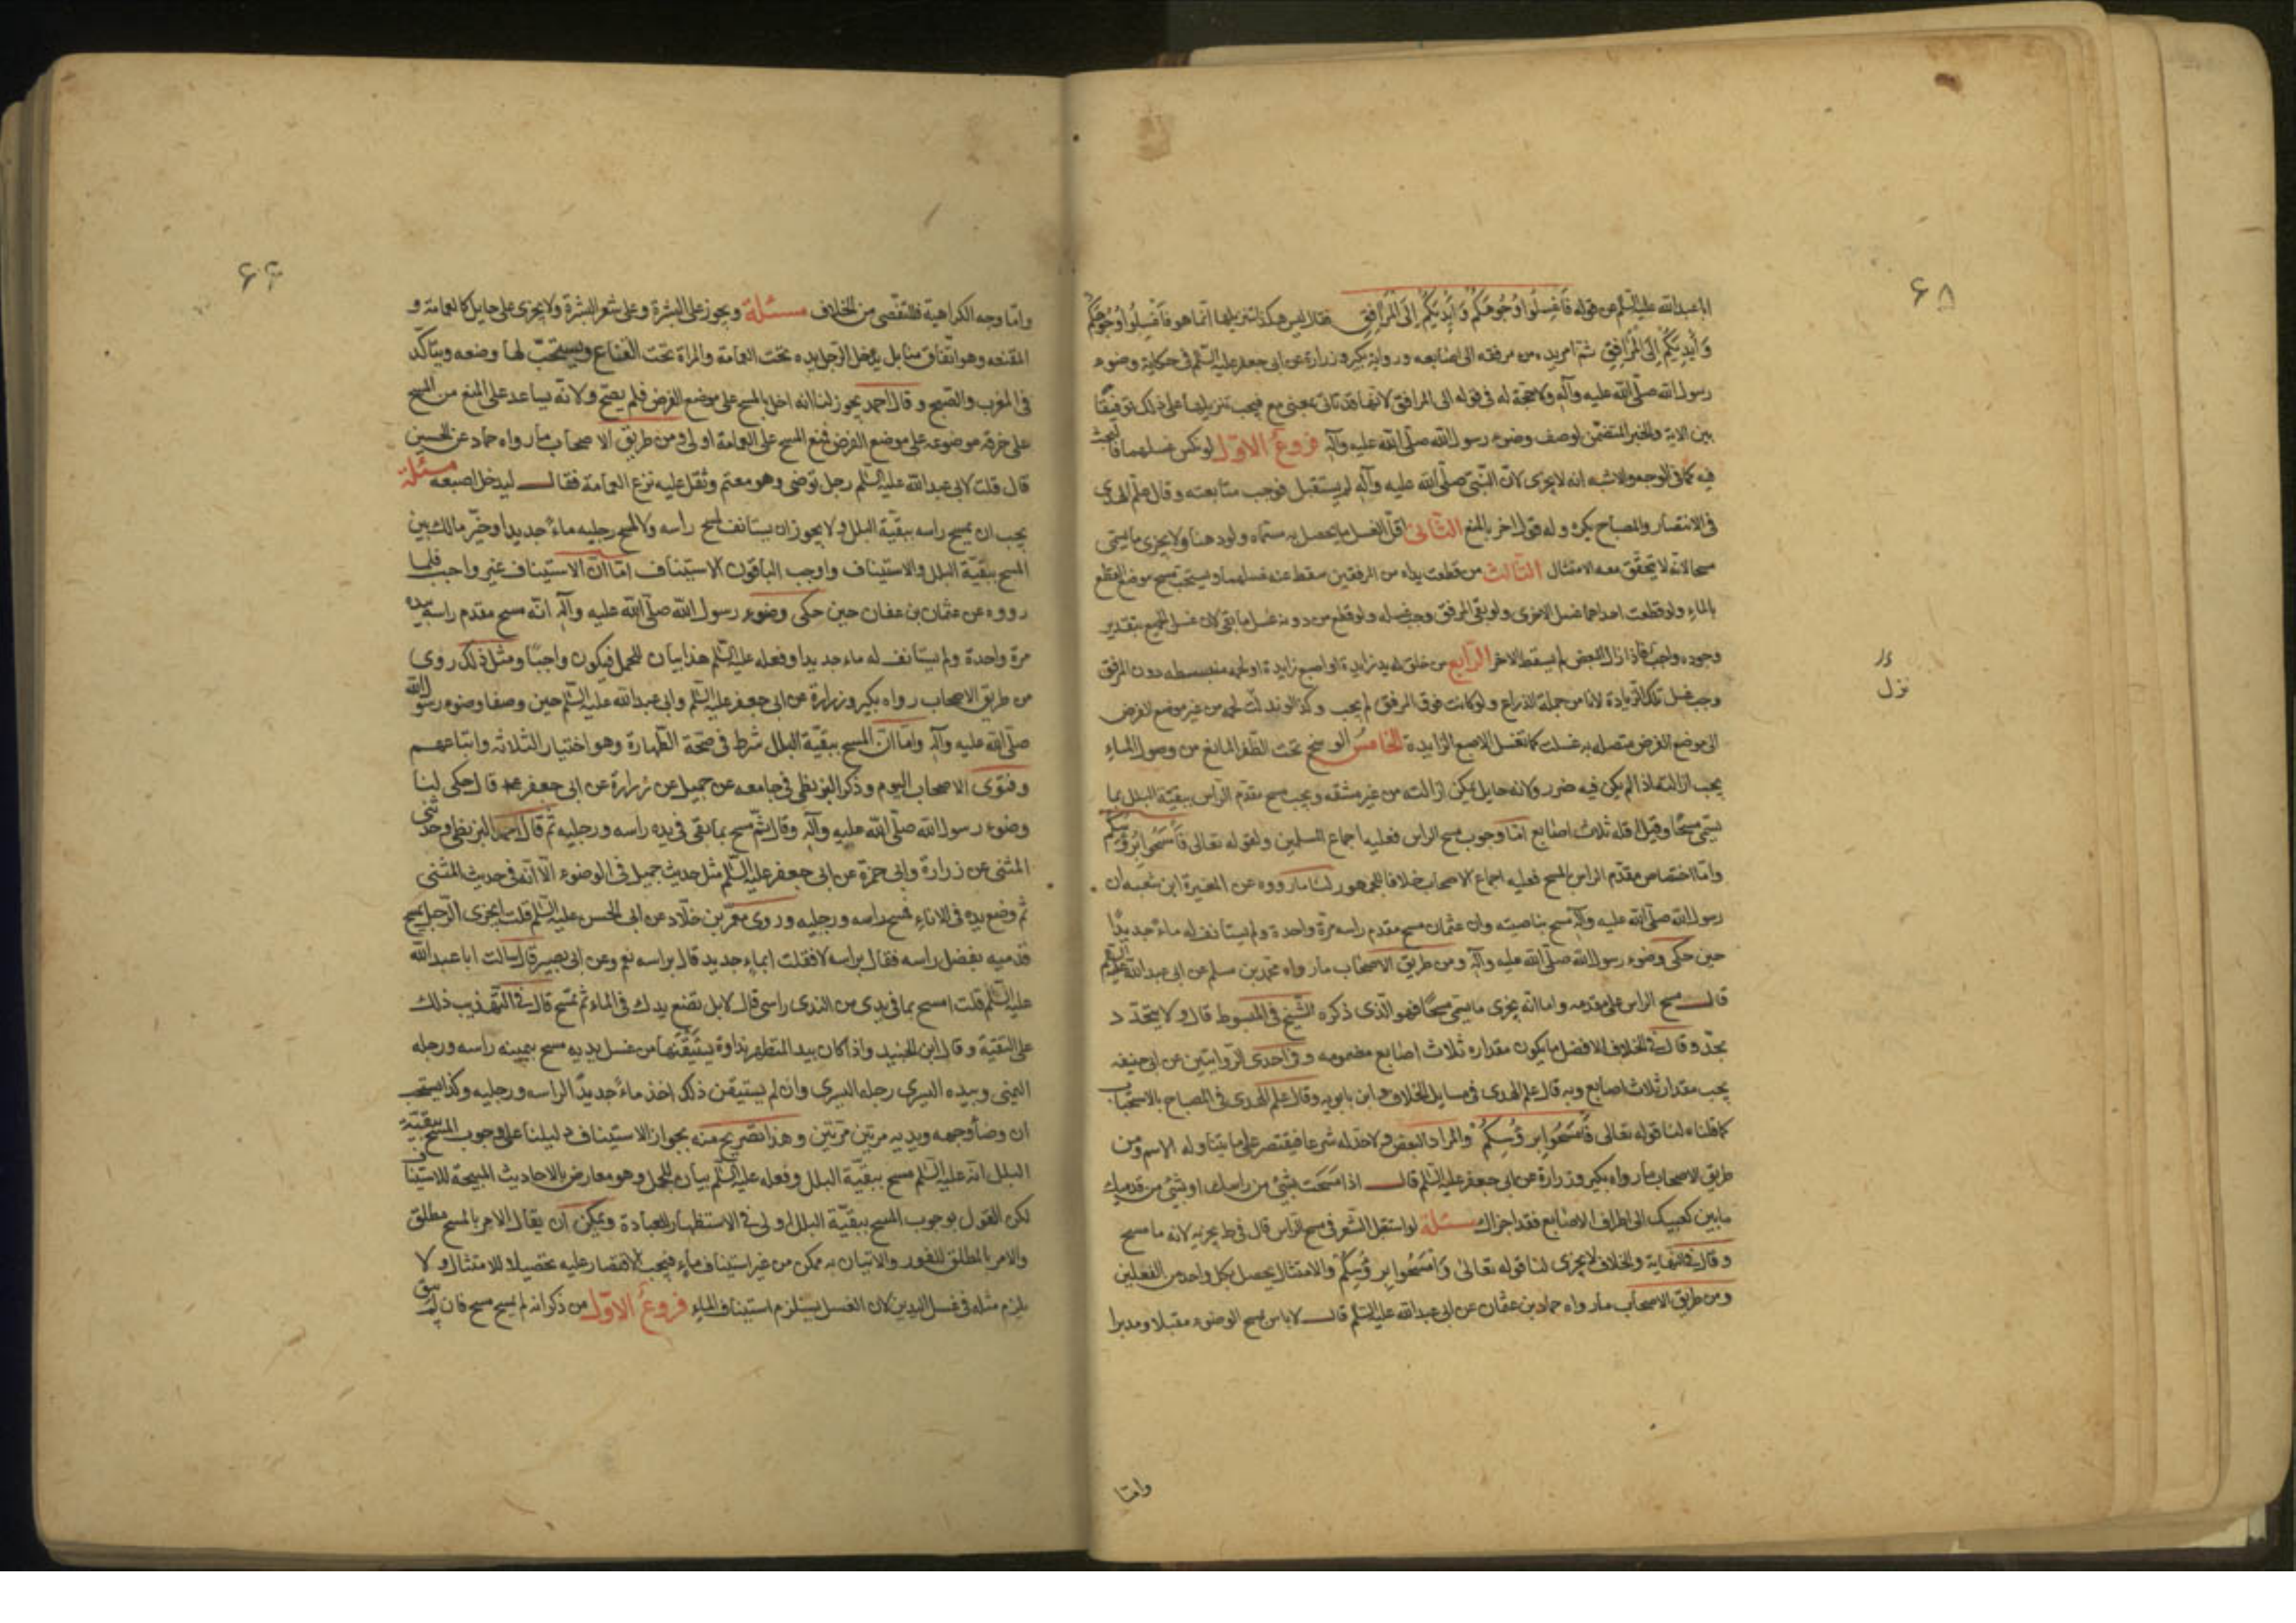 ۶۸
ابا عبدالله عليه السّلم عن قوله فَاغْسِلُوا وُجُوهَكُمْ وَأَيْدِيَكُمْ إِلَى الْمَرَافِقِ فقال ليس هكذا تنزيلها انّما هو فَاغْسِلُوا وُجُوهَكُمْ
وَأَيْدِيَكُمْ إِلَى الْمَرَافِقِ ثمّ امر يده من مرفقه الى اصابعه ورواية بكير وزرارة عن ابى جعفر عليه السّلم فى حكاية وضوء
رسول الله صلّى الله عليه وآله ولا حجّة له فى قوله الى المرافق لانّها قد تاتى بمعنى مع فيجب تنزيلها على ذلك توفيقًا
بين الاية والخبر المتضمّن لوصف وضوء رسول الله صلّى الله عليه وآله فروعٌ الاوّل لو نكس غسلهما فالبحث
فيه كما فى الوجه والاشبه انه لا يجزى لانّ النّبىّ صلّى الله عليه وآله لم يستقبل فوجب متابعته وقال علم الهدى
فى الانتصار والمصباح يكره وله قول اخر بالمنع الثّانى اقلّ الغسل ما يحصل به مسمّاه ولو دهنا ولا يجزى ما يسمّى
مسحا لانّه لا يتحقّق معه الامتثال الثالث من قطعت يداه من المرفقين سقط عنه غسلهما ويستحبّ مسح موضع القطع
بالماء ولو قطعت احداهما غسل الاخرى ولو بقى المرفق وجب غسله ولو قطع من دونه غسل ما بقى لانّ غسل الجميع بتقدير
وجوده واجب فاذا زال البعض لم يسقط الاخر الرّابع من خلق له يد زايدة او اصبع زايدة او لحمة منبسطه دون المرفق
وجب غسل تلك الزيادة لانها من جملة الذراع ولو كانت فوق المرفق لم يجب وكذا لو تدلّت لحمه من غير موضع الفرض
نزل
الى موضع الفرض متصله به غسلت كما تغسل الاصبع الزايدة الخامس الوسخ تحت الظّفر المانع من وصول الماء
يجب ازالته اذا لم يكن فيه ضرر ولانه حايل يمكن ازالته من غير مشقه ويجب مسح مقدّم الراس ببقيّة البلل بما
يسمّى مسحًا وقيل اقله ثلاث اصابع امّا وجوب مسح الراس فعليه اجماع المسلمين ولقوله تعالى فَامْسَحُوا بِرُؤُسِكُمْ
وامّا اختصاص مقدّم الراس بالمسح فعليه اجماع الاصحاب خلافا للجمهور لنا ما رووه عن المغيرة ابن شعبه ان
رسول الله صلّى الله عليه وآله مسح بناصيته وان عثمان مسح مقدم راسه مرّة واحدة ولم يستانف له ماءً جديدًا
حين حكى وضوء رسول الله صلّى الله عليه وآله ومن طريق الاصحاب ما رواه محمّد بن مسلم عن ابى عبدالله عليه السّلم
قال مسح الراس على مقدمه واما انّه يجزى ما يسمّى مسحًا فهو الّذى ذكره الشّيخ فى المبسوط قال ولا يتحدّد
بحدّ وقال فى الخلاف الافضل ما يكون مقداره ثلاث اصابع مضمومه وفى احدى الرّوايتين عن ابى حنيفه
يجب مقدار ثلاث اصابع وبه قال علم الهدى فى مسايل الخلاف وابن بابويه وقال علم الهدى فى المصباح بالاستحباب
كما قلناه لنا قوله تعالى فَامْسَحُوا بِرُؤُسِكُمْ والمراد البعض ولا حدّ له شرعا فيقتصر على ما يتناوله الاسم ومن
طريق الاصحاب ما رواه بكير وزرارة عن ابى جعفر عليه السّلم قال اذا مسحت بشئ من راسك او بشئ من قدميك
ما بين كعبيك الى اطراف الاصابع فقد اجزاك مسئلة لو استقبل الشّعر فى مسح الراس قال فى ط يجزيه لانه ما مسح
وقال فى النهاية والخلاف لا يجزى لنا قوله تعالى وَامْسَحُوا بِرُؤُسِكُمْ والامتثال يحصل بكلّ واحد من الفعلين
ومن طريق الاصحاب ما رواه حماد بن عثمان عن ابى عبدالله عليه السّلم قال لا باس بمسح الوضوء مقبلا ومدبرا
وامّا
۶۹
وامّا وجه الكراهية فللتفّصى من الخلاف مسئلة ويجوز على البشرة وعلى شعر البشرة ولا يجزى على حايل كالعمامة و
المقنعه وهو اتّفاق منّا بل يدخل الرّجل يده تحت العمامة والمراة تحت القناع ويستحبّ لها وضعه ويتاكّد
فى المغرب والصّبح وقال احمد يجوز لنا انه اخل بالمسح على موضع الفرض فلم يصحّ ولانّه يساعد على المنع من المسح
على خرقه موضوعه على موضع الفرض فمنع المسح على العمامة اولى ومن طريق الاصحاب ما رواه حماد عن الحسين
قال قلت لابى عبدالله عليه السّلم رجل توضى وهو معتم وثقل عليه نزع العمامة فقال ليدخل اصبعه مسئلة
يجب ان يمسح راسه ببقيّة البلل ولا يجوز ان يستانف لمسح راسه ولا لمسح رجليه ماءً جديدا وخيّر مالك بين
المسح ببقيّة البلل والاستيناف واوجب الباقون الاستيناف امّا انّ الاستيناف غير واجب فلما
رووه عن عثمان بن عفان حين حكى وضوء رسول الله صلّى الله عليه وآله انّه مسح مقدم راسه بيده
مرة واحدة ولم يستانف له ماء جديدا وفعله عليه السّلم هذا بيان للمجمل فيكون واجبًا ومثل ذلك روى
من طريق الاصحاب رواه بكير وزرارة عن ابى جعفر عليه السّلم وابى عبدالله عليه السّلم حين وصفا وضوء رسول الله
صلّى الله عليه وآله وامّا انّ المسح ببقيّة البلل شرط فى صحّة الطّهارة وهو اختيار الثلاثه واتباعهم
وفتوى الاصحاب اليوم وذكر البزنطى فى جامعه عن جميل عن زرارة عن ابى جعفر قال حكى لنا
وضوء رسول الله صلّى الله عليه وآله وقال ثمّ مسح بما بقى فى يده راسه ورجليه ثمّ قال احمد البزنطى وحدّثنى
المثنى عن زرارة وابى حمزة عن ابى جعفر عليه السّلم مثل حديث جميل فى الوضوء الّا انّه فى حديث المثنى
ثم وضع يده فى الاناء فمسح راسه ورجليه وروى معمّر بن خلّاد عن ابى الحسن عليه السّلم قلت ايجزى الرّجل يمسح
قدميه بفضل راسه فقال براسه لا فقلت ابماءٍ جديد قال براسه نعم وعن ابى بصير قال سالت ابا عبدالله
عليه السّلم قلت امسح بما فى يدى من الندى راسى قال لا بل تضع يدك فى الماء ثم تمسح قال فى التهذيب ذلك
على التقيّة وقال ابن الجنيد واذا كان بيد المتطهر نداوة يستبقيها من غسل يديه مسح بيمينه راسه ورجله
اليمنى وبيده اليسرى رجله اليسرى وان لم يستبقى ذلك اخذ ماءً جديدًا لراسه ورجليه وكذا يستحب
ان وضأ وجهه ويديه مرتين مرّتين وهذا تصريح منه بجواز الاستيناف دليلنا على وجوب المسح ببقيّة
البلل انّه عليه السّلم مسح ببقيّة البلل وفعله عليه السّلم بيان للمجمل وهو معارض بالاحاديث المبيحة للاستيناف
لكن القول بوجوب المسح ببقيّة البلل اولى فى الاستظهار للعبادة ويمكن ان يقال الامر بالمسح مطلق
والامر المطلق للفور والاتيان به ممكن من غير استيناف ماء فيجب الاقتصار عليه تحصيلا للامتثال ولا
يلزم مثله فى غسل اليدين لان الغسل يستلزم استيناف الماء فروعٌ الاوّل من ذكر انه لم يمسح مسح فان لم يبق